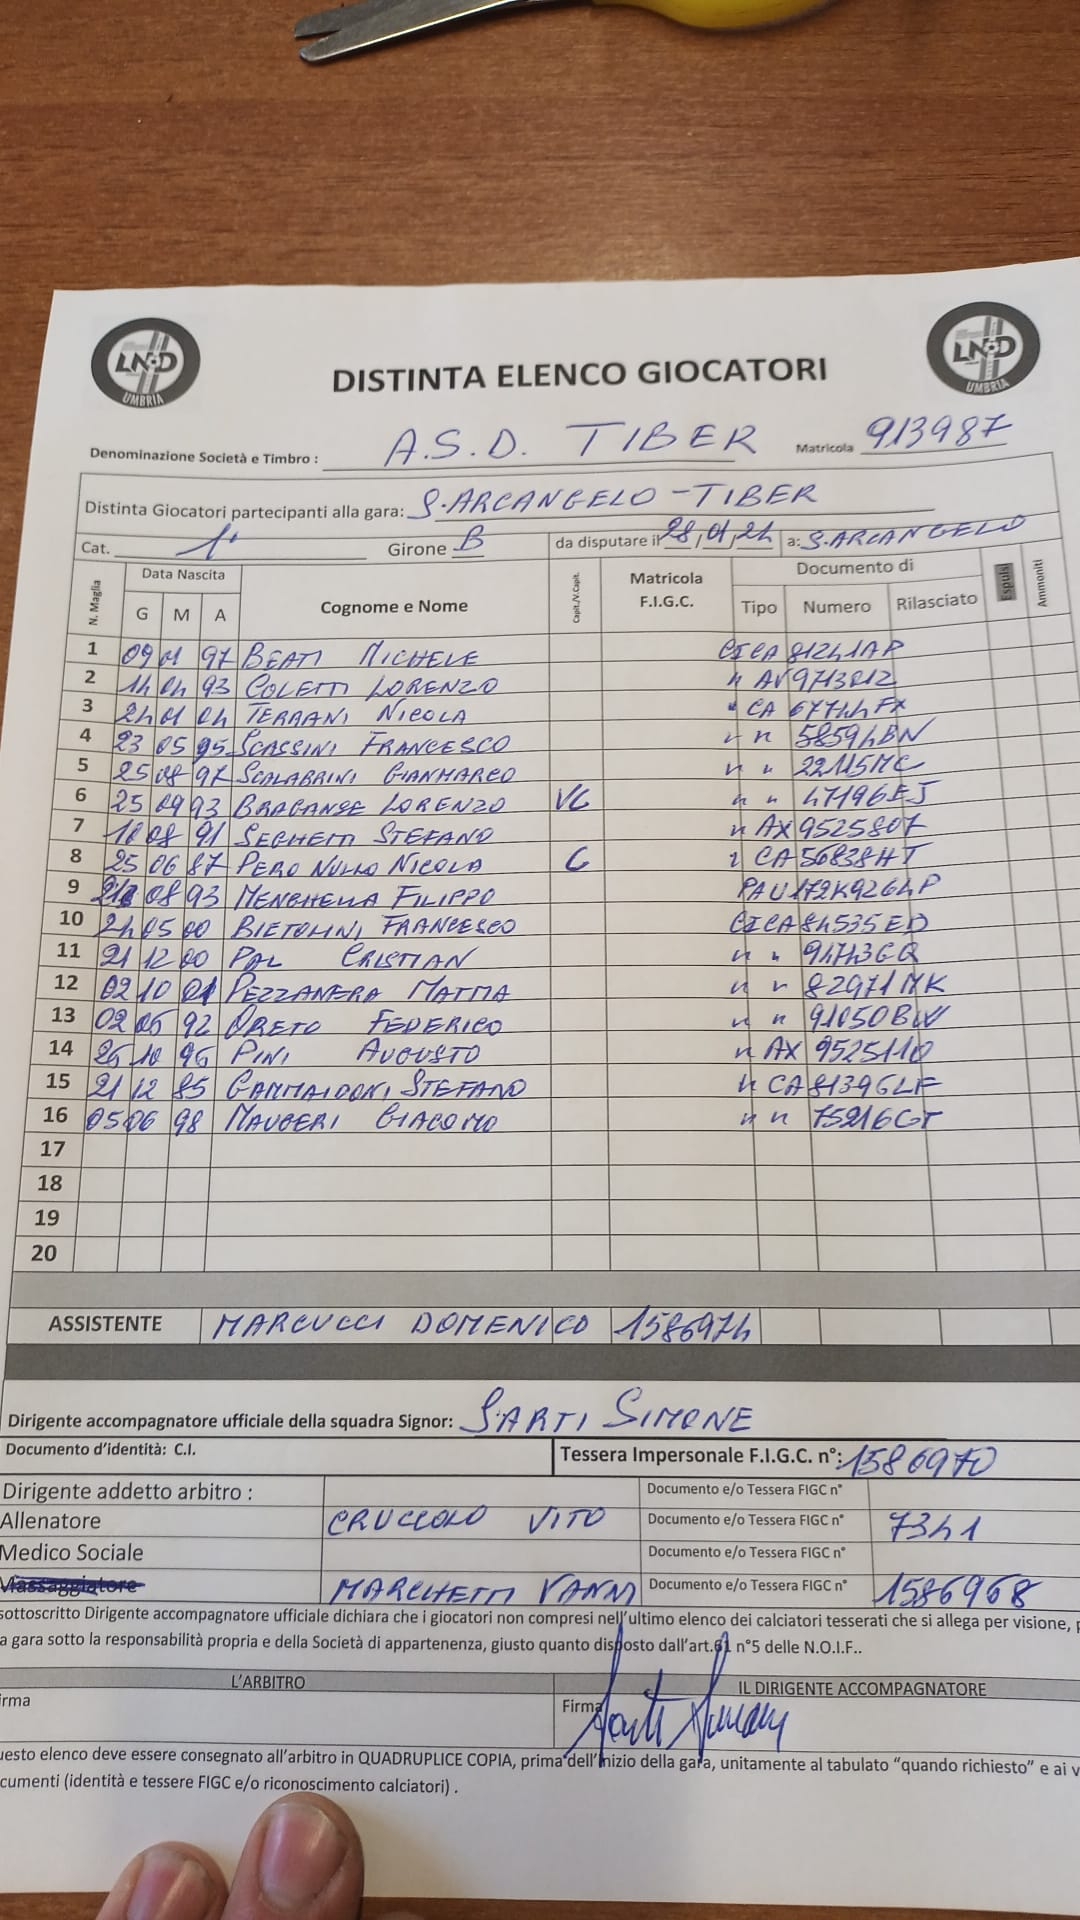 LND UMBRIA
LND UMBRIA
DISTINTA ELENCO GIOCATORI
Denominazione Società e Timbro : A.S.D. TIBER Matricola 913987
Distinta Giocatori partecipanti alla gara: S.ARCANGELO - TIBER
Cat. 1° Girone B da disputare il 28,01,24 a: S.ARCANGELO
N. Maglia Data Nascita Cognome e Nome Capit./V.Capit. Matricola F.I.G.C. Documento di Espulsi Ammoniti
G M A Tipo Numero Rilasciato
1 09 01 97 BEATI MICHELE CI CA 81241AP
2 14 04 93 COLETTI LORENZO " AV9713812
3 24 01 04 TERRANI NICOLA " CA 67744FX
4 23 05 95 SCASSINI FRANCESCO " " 58594BN
5 25 08 97 SCALABRINI GIANMARCO " " 22115MC
6 25 09 93 BRAGANSE LORENZO VC " " 47196EJ
7 08 91 SEGHETTI STEFANO " AX9525807
8 25 06 87 PERO NULLO NICOLA C " CA56838HT
9 08 93 MENGHELLA FILIPPO PAU172K9264P
10 24 05 00 BIETOLINI FRANCESCO CI CA84535ED
11 21 12 00 PAL CRISTIAN " " 94743GQ
12 02 10 01 PEZZANERA MATTIA " " 82971MK
13 02 05 92 ORETO FEDERICO " " 91050BW
14 10 PINI AUGUSTO " AX 9525110
15 21 12 85 GAMMAIDONI STEFANO " CA81396LF
16 05 06 98 MAUGERI GIACOMO " " 75216GT
17
18
19
20
ASSISTENTE MARCUCCI DOMENICO 1586974
Dirigente accompagnatore ufficiale della squadra Signor: SARTI SIMONE
Documento d'identità: C.I. Tessera Impersonale F.I.G.C. n°: 1586970
Dirigente addetto arbitro : Documento e/o Tessera FIGC n°
Allenatore CRUCCOLO VITO Documento e/o Tessera FIGC n° 7341
Medico Sociale Documento e/o Tessera FIGC n°
Massaggiatore MARCHETTI VANNI Documento e/o Tessera FIGC n° 1586968
sottoscritto Dirigente accompagnatore ufficiale dichiara che i giocatori non compresi nell'ultimo elenco dei calciatori tesserati che si allega per visione,
a gara sotto la responsabilità propria e della Società di appartenenza, giusto quanto disposto dall'art.61 n°5 delle N.O.I.F..
L'ARBITRO IL DIRIGENTE ACCOMPAGNATORE
irma Firma Sarti Simone
uesto elenco deve essere consegnato all'arbitro in QUADRUPLICE COPIA, prima dell'inizio della gara, unitamente al tabulato "quando richiesto" e ai v
cumenti (identità e tessere FIGC e/o riconoscimento calciatori) .